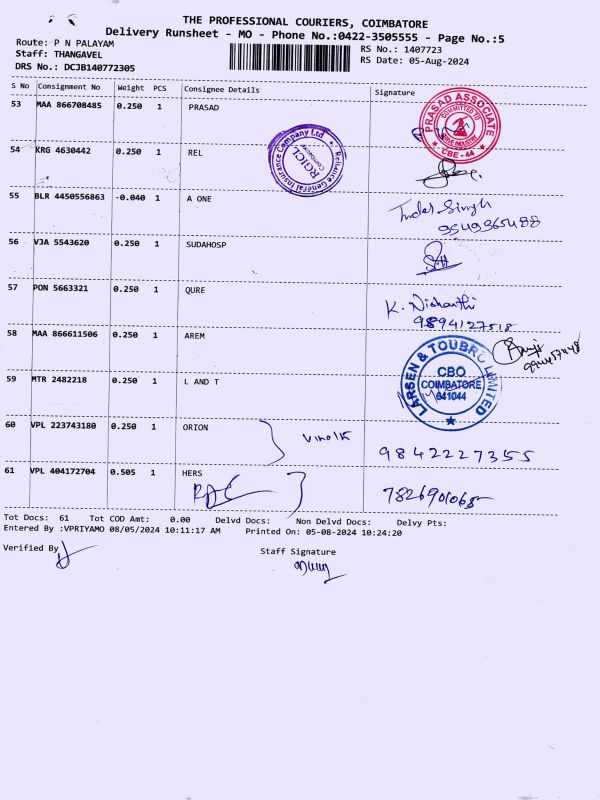 THE PROFESSIONAL COURIERS, COIMBATORE
Delivery Runsheet - MO - Phone No.:0422-3505555 - Page No.:5
Route: P N PALAYAM
Staff: THANGAVEL
DRS No.: DCJB140772305
RS No.: 1407723
RS Date: 05-Aug-2024
S No Consignment No Weight PCS Consignee Details Signature
53 MAA 866708485 0.250 1 PRASAD
PRASAD ASSOCIATE
COMMITTED TO
CBE - 44
54 KRG 4630442 0.250 1 REL
Reliance General Insurance Company Ltd
RGICL
Coimbatore
55 BLR 4450556863 -0.040 1 A ONE
Inder Singh
9549365488
56 VJA 5543620 0.250 1 SUDAHOSP
57 PON 5663321 0.250 1 QURE
K. Nishanthi
9894127518
58 MAA 866611506 0.250 1 AREM
59 MTR 2482218 0.250 1 L AND T
LARSEN & TOUBRO LIMITED
CBO
COIMBATORE
641044
60 VPL 223743180 0.250 1 ORION
9842227355
61 VPL 404172704 0.505 1 HERS
Tot Docs: 61 Tot COD Amt: 0.00 Delvd Docs: Non Delvd Docs: Delvy Pts:
Entered By :VPRIYAMO 08/05/2024 10:11:17 AM Printed On: 05-08-2024 10:24:20
Verified By
Staff Signature